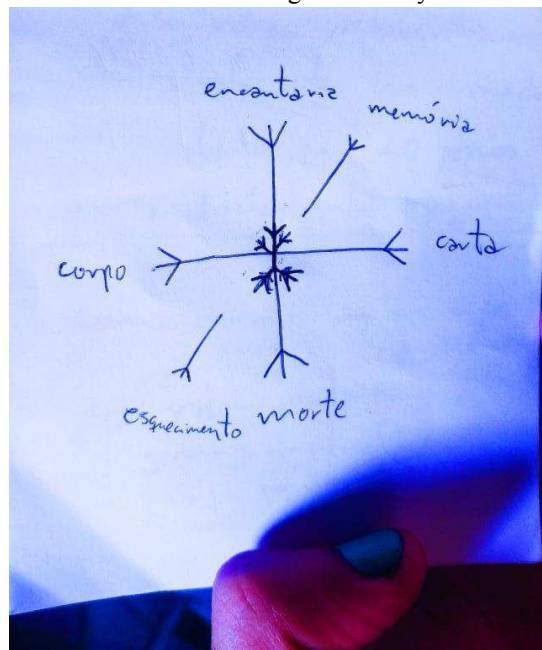 encantaria
memória
carta
corpo
esquecimento
morte